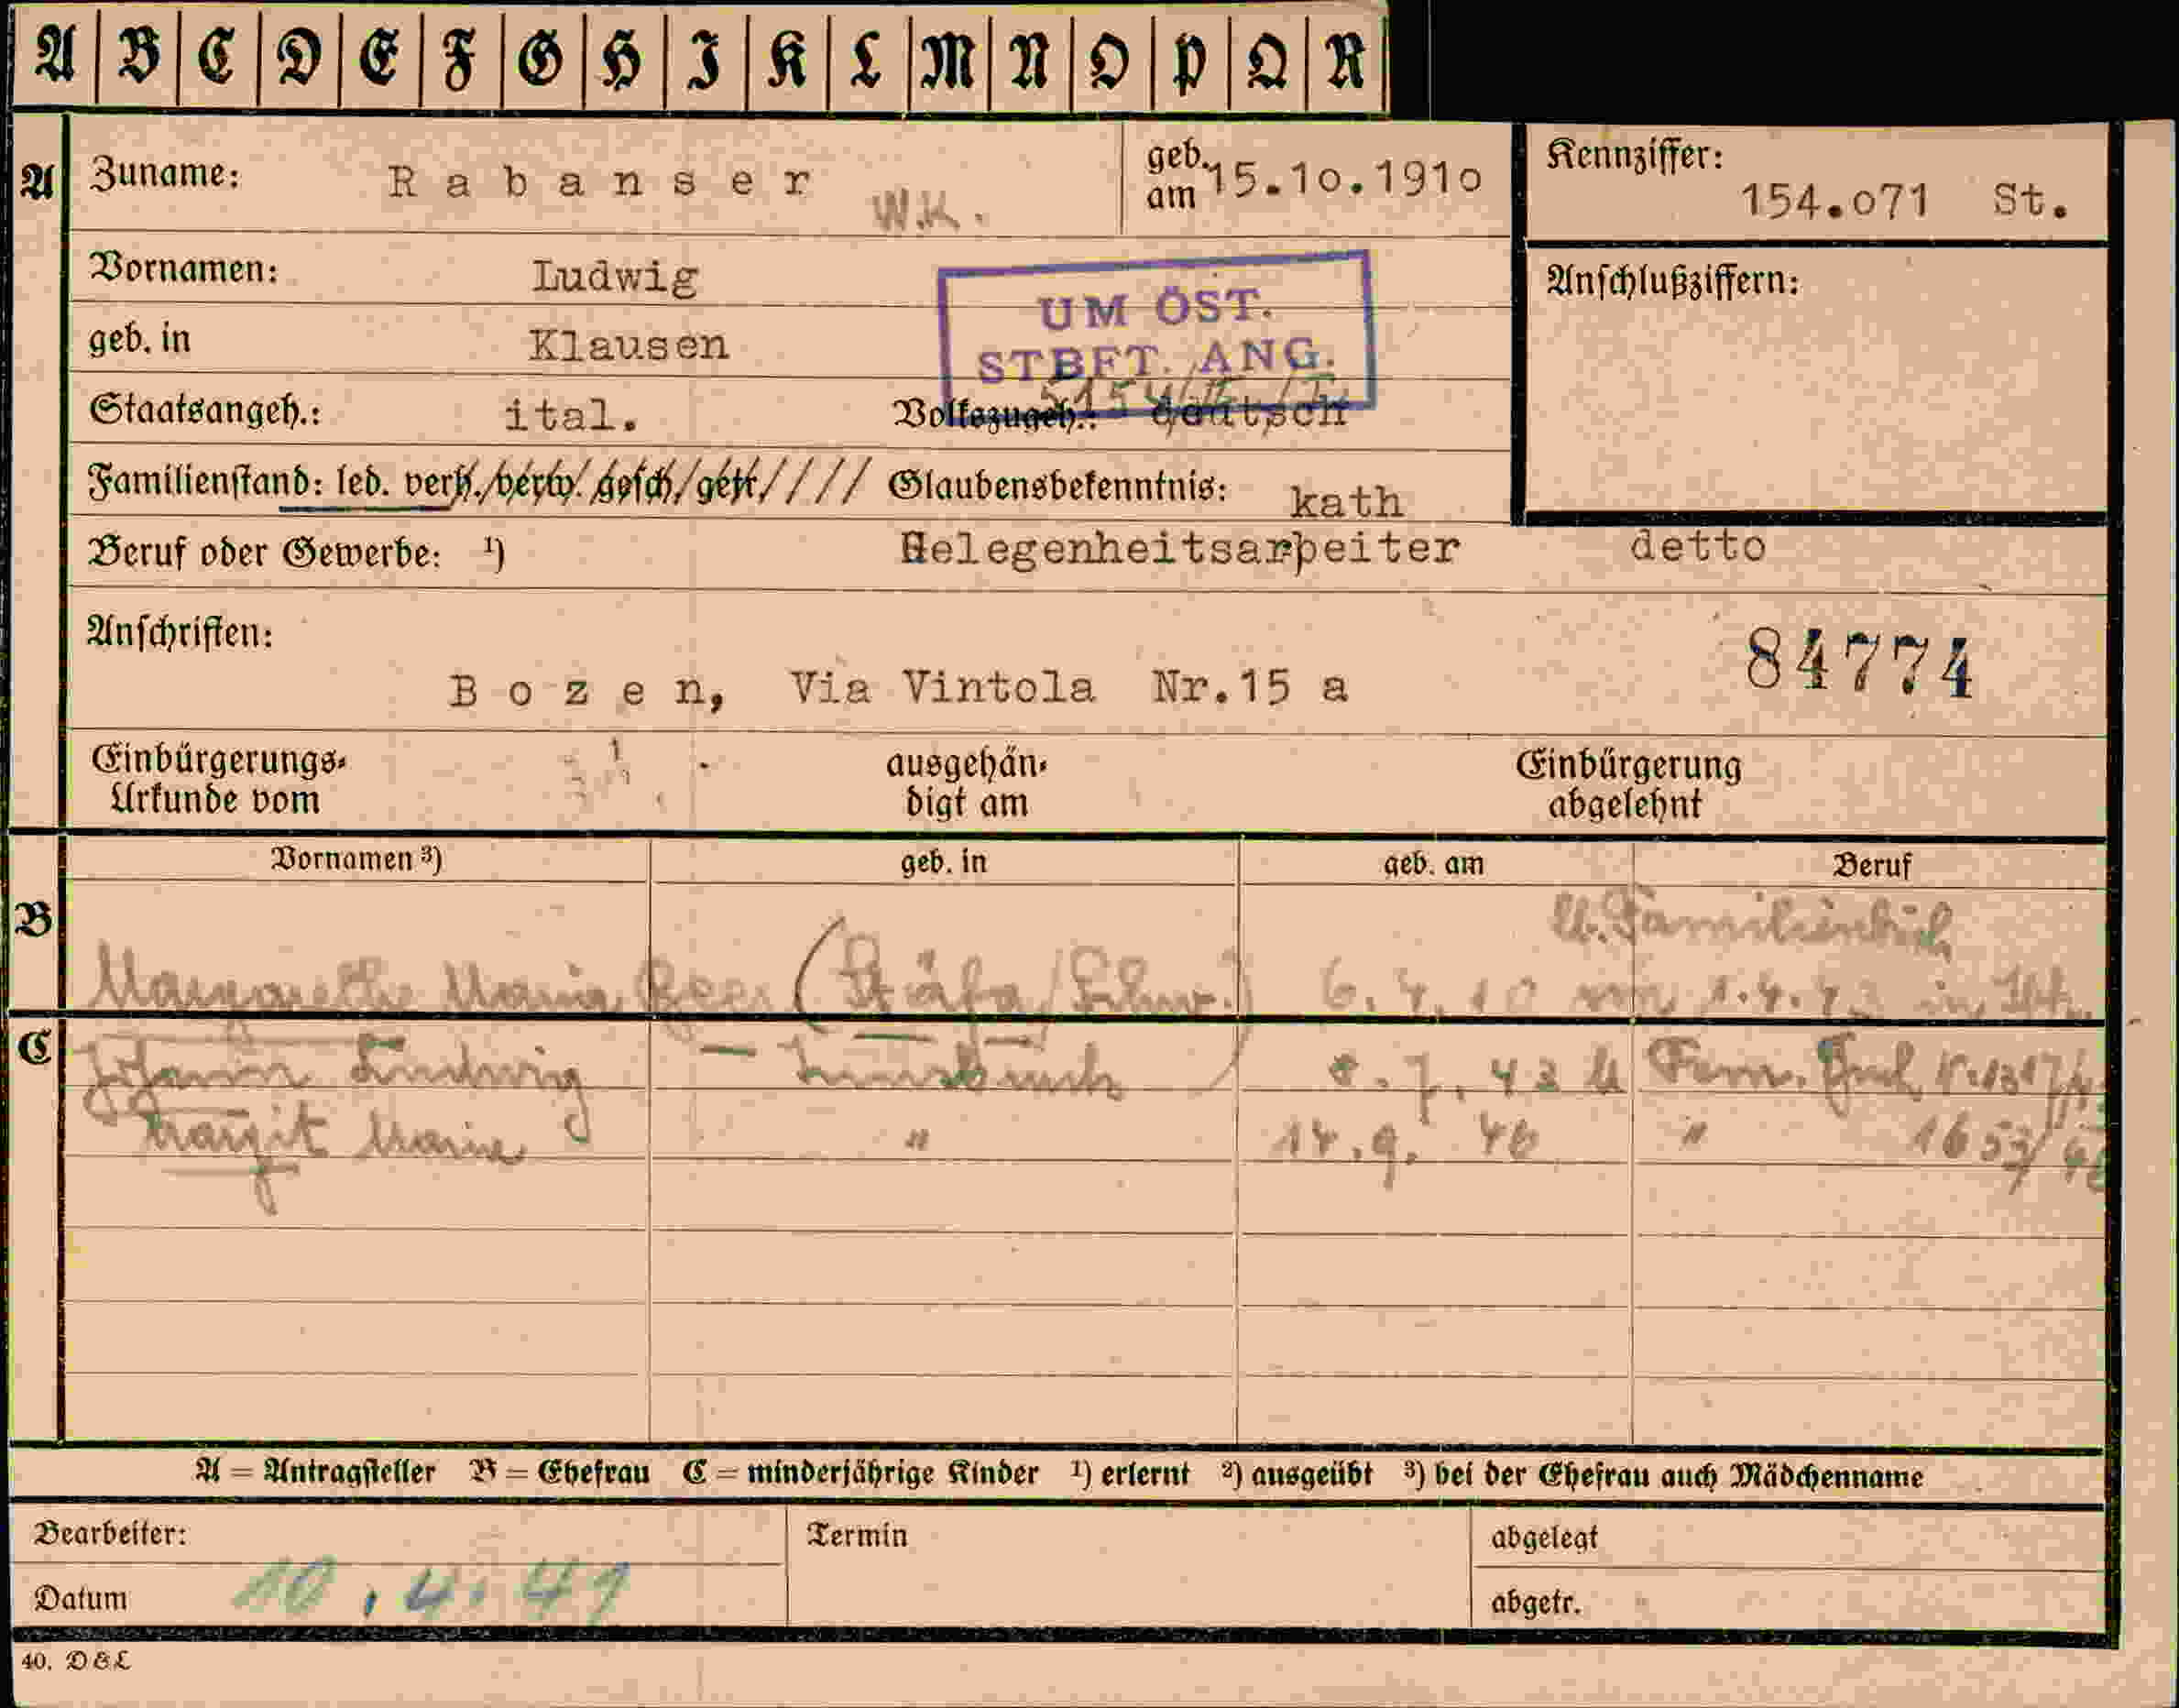 A B C D E F G H I K L M N O P Q R
A Zuname: Rabanser W.K. geb. am 15.10.1910 Kennziffer: 154.071 St.
Vornamen: Ludwig Anschlußziffern:
UM ÖST.
geb. in Klausen
STBFT. ANG.
Staatsangeh.: ital. Volkszugeh.: deutsch
Familienstand: led. verh. verw. gesch. getr. //// Glaubensbekenntnis: kath
Beruf oder Gewerbe: ¹) Gelegenheitsarbeiter detto
Anschriften: 84774
Bozen, Via Vintola Nr.15 a
Einbürgerungs- ausgehän- Einbürgerung
Urkunde vom digt am abgelehnt
Vornamen ³) geb. in geb. am Beruf
B lt. Familienbuch
Margarethe Maria (Stäfa/Schw.) 6.4.10 in
C Johann Ludwig – Innsbruck 8.7.42 lt Fam. Buch
Margit Maria " 14.9.46 "
A = Antragsteller B = Ehefrau C = minderjährige Kinder ¹) erlernt ²) ausgeübt ³) bei der Ehefrau auch Mädchenname
Bearbeiter: Termin abgelegt
Datum 10.4.41 abgetr.
40. D&L